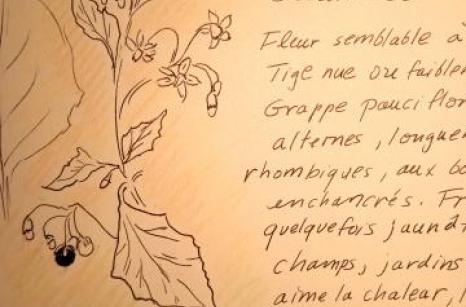 Fleur semblable à
Tige nue ou faiblem
Grappe pauciflor
alternes, longue
rhombiques, aux bo
enchancrés. Fr
quelquefois jaunâ
champs, jardins
aime la chaleur,